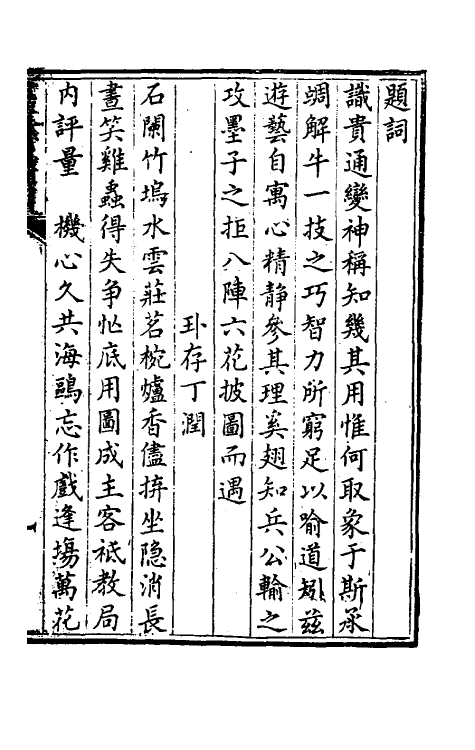 題詞
識貴通變神稱知幾其用惟何取象于斯承
蜩解牛一技之巧智力所窮足以喻道矧兹
遊藝自寓心精靜參其理奚翅知兵公輸之
攻墨子之拒八陣六花披圖而遇
卧存丁潤
石闌竹塢水雲莊茗椀爐香儘拚坐隐消長
晝笑雞蟲得失争忙底用圖成主客祗教局
内評量　機心久共海鷗忘作戲逢塲萬花